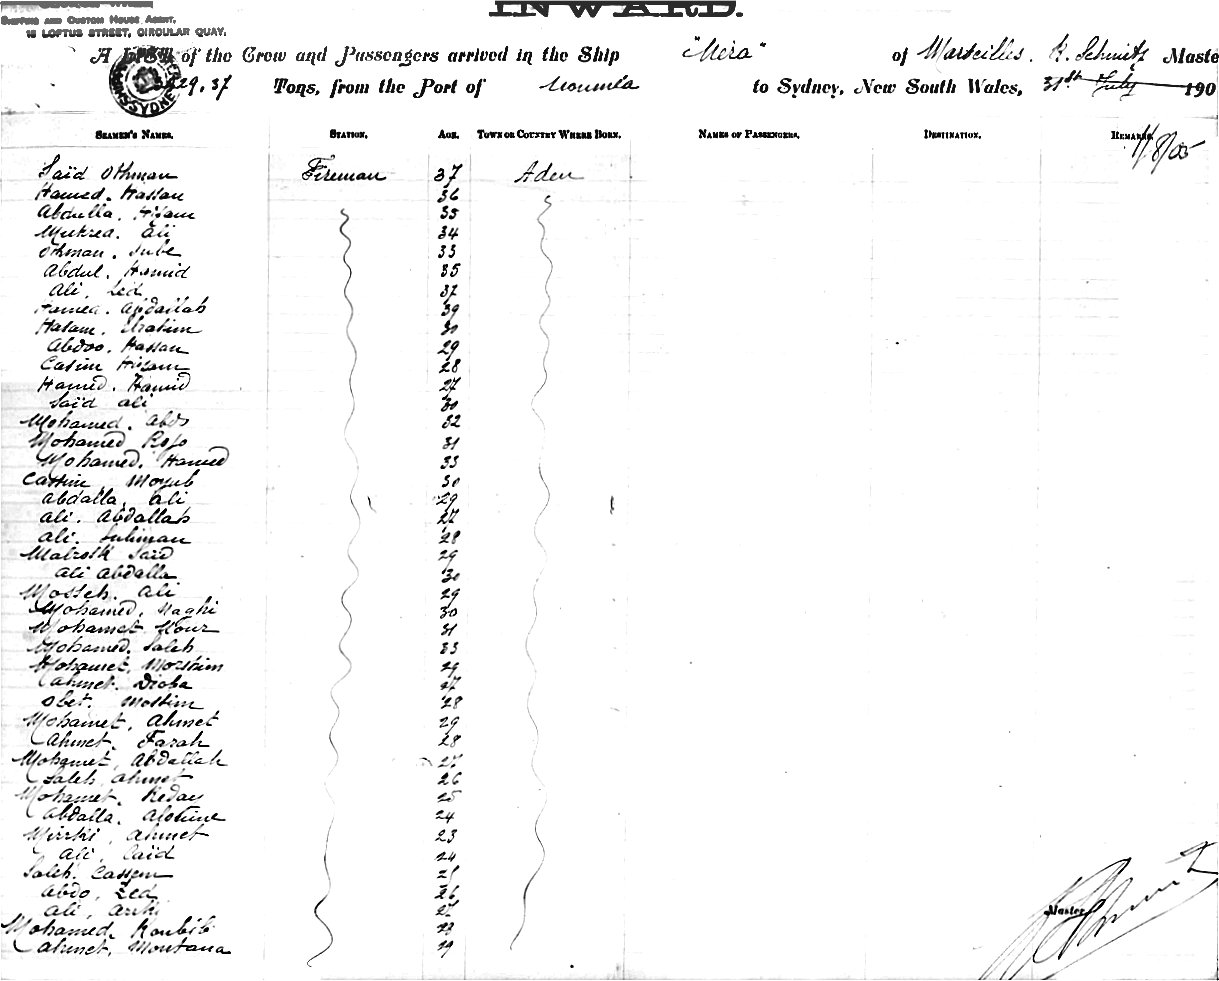 INWARD.
SHIPPING AND CUSTOM HOUSE AGENT,
15 LOFTUS STREET, CIRCULAR QUAY.
A LIST of the Crew and Passengers arrived in the Ship "Mera" of Marseilles. R. Schmitz Master
29.37 Tons, from the Port of Noumea to Sydney, New South Wales, 31st July 190
1/8/05
SEAMEN'S NAMES. STATION. AGE. TOWN OR COUNTRY WHERE BORN. NAMES OF PASSENGERS. DESTINATION. REMARKS.
Saïd Othman Fireman 37 Aden
Hamed. Hassan 36
Abdulla. Hisam 35
Ali 34
Othman. 33
Abdul. Hamid 35
Ali. Zed 37
Hamed. Abdallah 39
Hasam. Ibrahim 30
Abdoo. Hassan 29
Casim Hisam 28
Hamed. Hamid 27
Saïd ali 30
Mohamed. Abdo 32
Mohamed Rojo 31
Mohamed. Hamed 33
Cassim Moyub 30
Abdalla. Ali 29
Ali. Abdallah 27
Ali. Suliman 28
Said 29
Ali Abdalla 30
Mosseh. Ali 29
Mohamed. Naghi 30
Mohamet Nour 31
Mohamed. Saleh 33
Mohamet. Morshim 29
Ahmet. Dioba 27
Obet. Mossim 28
Mohamet. Ahmet 29
Ahmet. Farah 28
Mohamet, Abdallah 27
Saleh, Ahmet 26
Mohamet. Redan 25
Abdalla. 24
Ahmet 23
Ali. Caïd 24
Saleh. Cassem 25
Abdo, Zed 26
Ali, 27
Mohamed. Koubib 28
Ahmet. Montana 29
Master